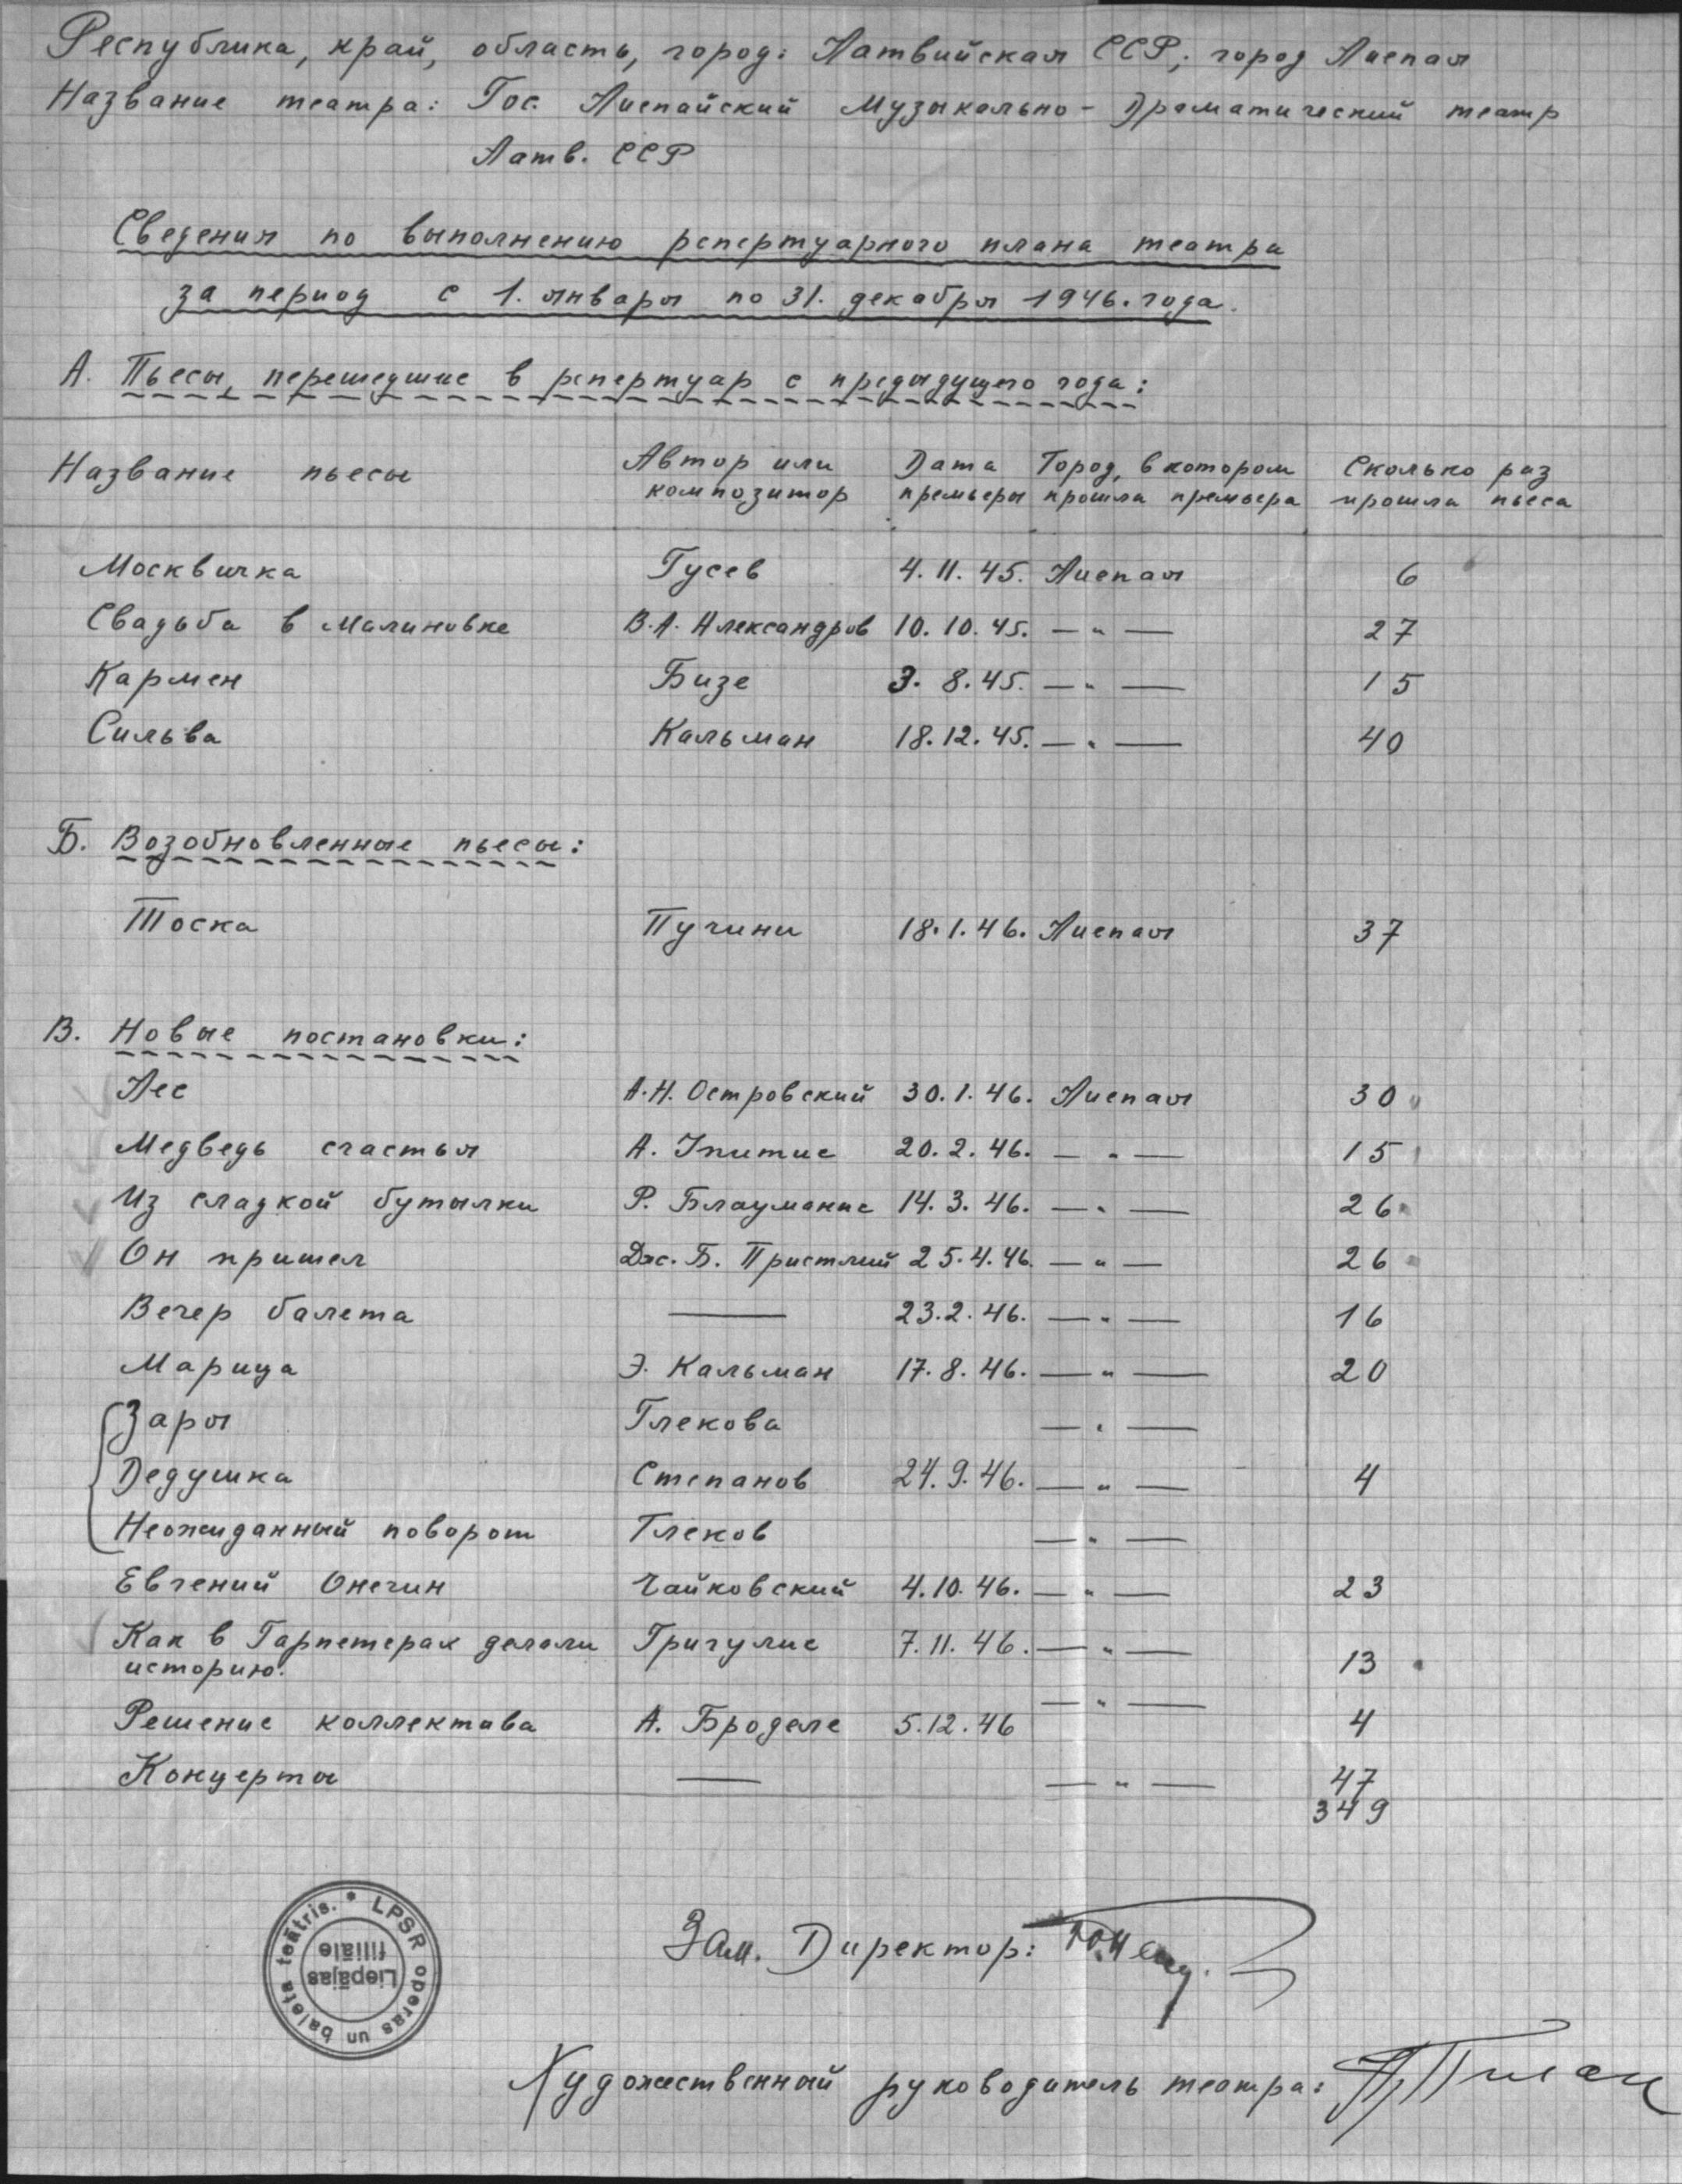 Республика, край, область, город: Латвийская ССР, город Лиепая
Название театра: Гос. Лиепайский Музыкально-Драматический театр
Латв. ССР
Сведения по выполнению репертуарного плана театра
за период с 1. января по 31. декабря 1946. года.
А. Пьесы, перешедшие в репертуар с предыдущего года:
Название пьесы Автор или композитор Дата премьеры Город, в котором прошла премьера Сколько раз прошла пьеса
Москвичка Гусев 4.11.45. Лиепая 6
Свадьба в Малиновке Б.А. Александров 10.10.45. — " — 27
Кармен Бизе 3.8.45. — " — 15
Сильва Кальман 18.12.45. — " — 40
Б. Возобновленные пьесы:
Тоска Пучини 18.1.46. Лиепая 37
В. Новые постановки:
Лес А.Н. Островский 30.1.46. Лиепая 30
Медведь счастья А. Упитис 20.2.46. — " — 15
Из сладкой бутылки Р. Блауманис 14.3.46. — " — 26
Он пришел Дж. Б. Пристлий 25.4.46. — " — 26
Вечер балета — 23.2.46. — " — 16
Марица Э. Кальман 17.8.46. — " — 20
Заря Глекова — " —
Дедушка Степанов 24.9.46. — " — 4
Неожиданный поворот Глеков — " —
Евгений Онегин Чайковский 4.10.46. — " — 23
Как в Гарпетерах делали Григулис 7.11.46. — " — 13
историю.
Решение коллектива А. Броделе 5.12.46 — " — 4
Концерты — — " — 47
349
LPSR operas un baleta teātris.
Liepājas
filiāle
Зам. Директор:
Художественный руководитель театра: